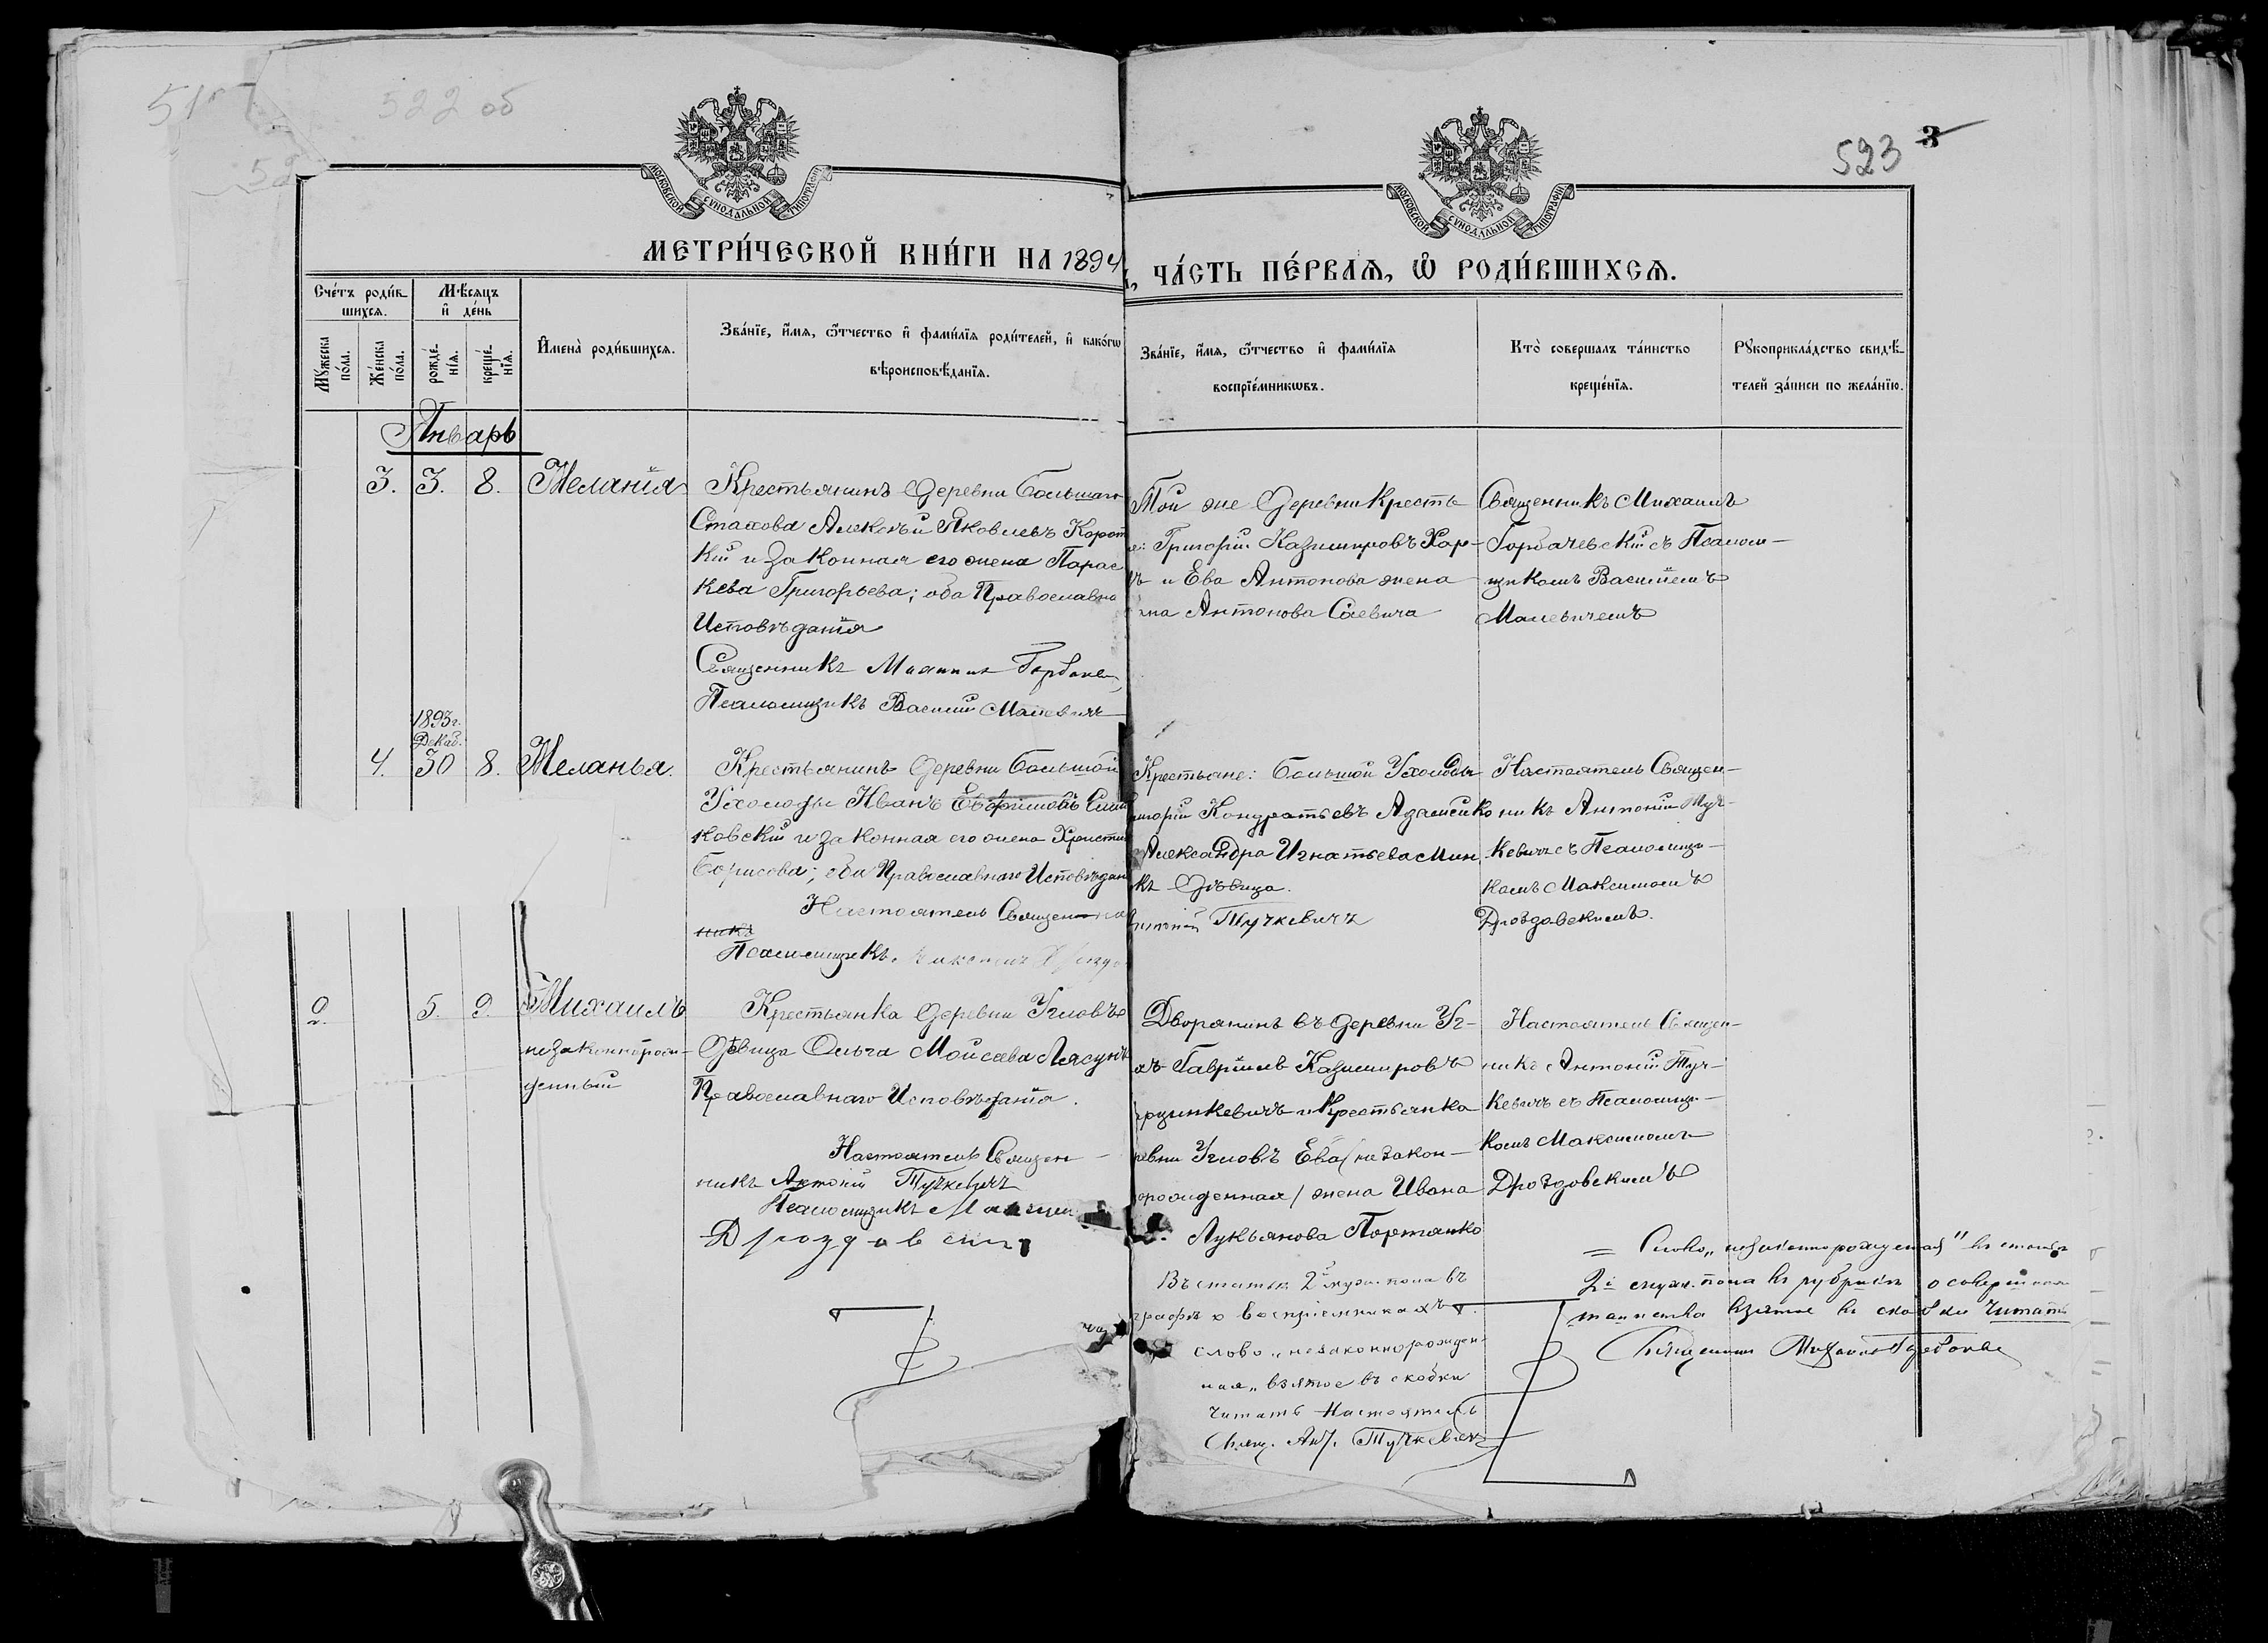 522 об
523 3
МОСКОВСКОЙ СѴНОДАЛЬНОЙ ТИПОГРАФІИ
МОСКОВСКОЙ СѴНОДАЛЬНОЙ ТИПОГРАФІИ
МЕТРИ́ЧЕСКОЙ КНИ́ГИ НА 1894
ЧА́СТЬ ПЕ́РВАѦ, Ѡ҆ РОДИ́ВШИХСѦ.
Сче́тъ роди́в-
шихсѧ.
Мꙋ́жеска по́ла.
Же́нска по́ла.
Мѣ́сѧцъ
и҆ де́нь
рожде́-
нїѧ.
креще́-
нїѧ.
И҆мена̀ роди́вшихсѧ.
Зва́нїе, и҆́мѧ, ѻ҆́тчество и҆ фами́лїѧ роди́телей, и҆ како́гѡ
вѣроисповѣ́данїѧ.
Зва́нїе, и҆́мѧ, ѻ҆́тчество и҆ фами́лїѧ
воспрїе́мникѡвъ.
Кто̀ соверша́лъ та́инство
креще́нїѧ.
Рꙋкоприкла́дство свидѣ́-
телей за́писи по жела́нїю.
Январь
3. 3. 8. Меланія
Крестьянинъ деревни Большаго
Стахова Алексѣй Яковлевъ Корот
кій и законная его жена Парас
кева Григорьева; оба Православна
Исповѣданія
Священникъ Михаилъ
Псаломщикъ Василій Малевичъ
Той же деревни Кресть
Григорій Казимировъ Хар-
ъ и Ева Антонова жена
Антонова Саевича
Священникъ Михаилъ
Горбачевскій съ Псалом-
щикомъ Василіемъ
Малевичемъ
1893г.
Декаб.
4. 30 8. Меланья.
Крестьянинъ деревни Большой
Ухолоды Иванъ Евфимовъ
ковскій и законная его жена Христи
Борисова; оба Православнаго Исповѣдан
Настоятель Священ
никъ
Псаломщикъ
Крестьяне: Большой Ухолоды
Кондратьевъ Адамейко
Александра Игнатьева Мин
къ дѣвица.
Тучкевичъ
Настоятель Священ-
никъ Антоній Туч-
кевичъ съ Псаломщи-
комъ Максимомъ
Дроздовскимъ.
5. 9. Михаилъ
незаконнорож-
денный
Крестьянка деревни Угловъ
дѣвица Ольга Моисеева Лясунъ
Православнаго Исповѣданія.
Настоятель Священ-
никъ Антоній Тучкевичъ
Псаломщикъ Максим
Дроздовскій
Дворянинъ въ деревни Уг-
ахъ Гавріилъ Казимировъ
и Крестьянка
ревни Угловъ Ева (незакон-
норожденная) жена Ивана
Лукьянова Портянко
Настоятель Священ-
никъ Антоній Туч-
кевичъ съ Псаломщи-
комъ Максимомъ
Дроздовскимъ
Въ статьѣ 2й муж. пола въ
графѣ о воспріемникахъ
слово „незаконнорожден-
ная„ взятое въ скобки
читать Настоятель
Свящ. Ант. Тучкевичъ
= Слово „незаконнорожденная" въ статьѣ
2й муж. пола въ рубрикѣ о соверш
таинства взятое въ скобки читать
Священникъ Михаилъ